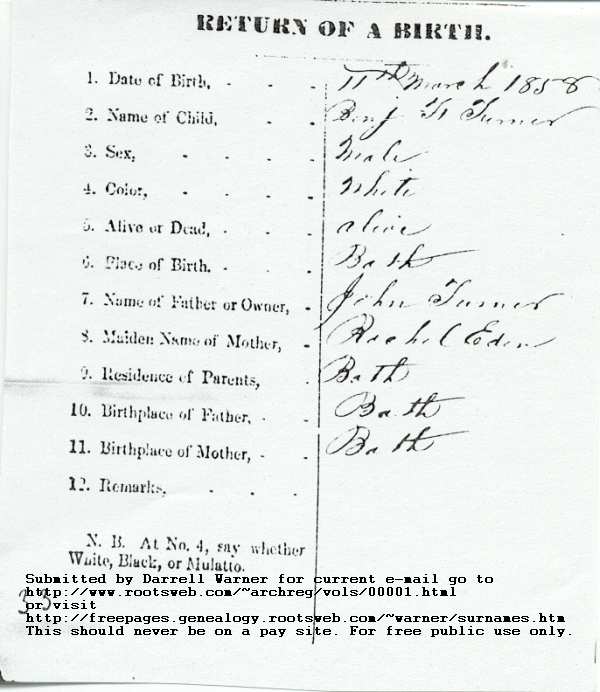 RETURN OF A BIRTH.
1. Date of Birth, - - - 11th March 1858
2. Name of Child, - - Benj F Turner
3. Sex, - - - - Male
4. Color, - - - - White
5. Alive or Dead, - - - alive
6. Place of Birth. - - - Bath
7. Name of Father or Owner, - John Turner
8. Maiden Name of Mother, - Rachel Eden
9. Residence of Parents, - Bath
10. Birthplace of Father, - - Bath
11. Birthplace of Mother, - - Bath
12. Remarks, - - -
N. B. At No. 4, say whether
White, Black, or Mulatto.
Submitted by Darrell Warner for current e-mail go to
http://www.rootsweb.com/~archreg/vols/00001.html
or visit
http://freepages.genealogy.rootsweb.com/~warner/surnames.htm
This should never be on a pay site. For free public use only.